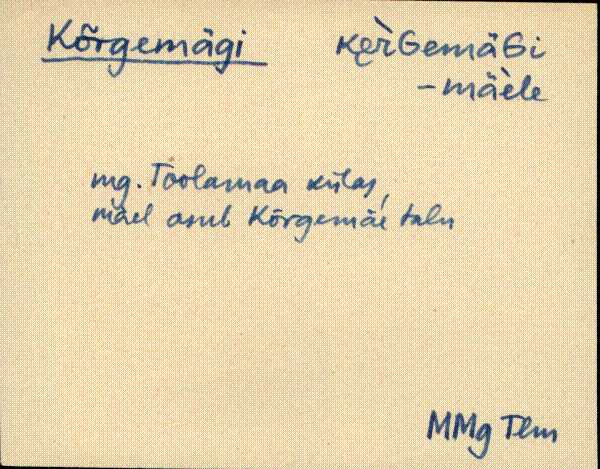 Kõrgemägi
ке̬r̀Gemäɢi
-mäèle
mg. Toolamaa külas,
mäel asub Kõrgemäe talu
MMg Tlm